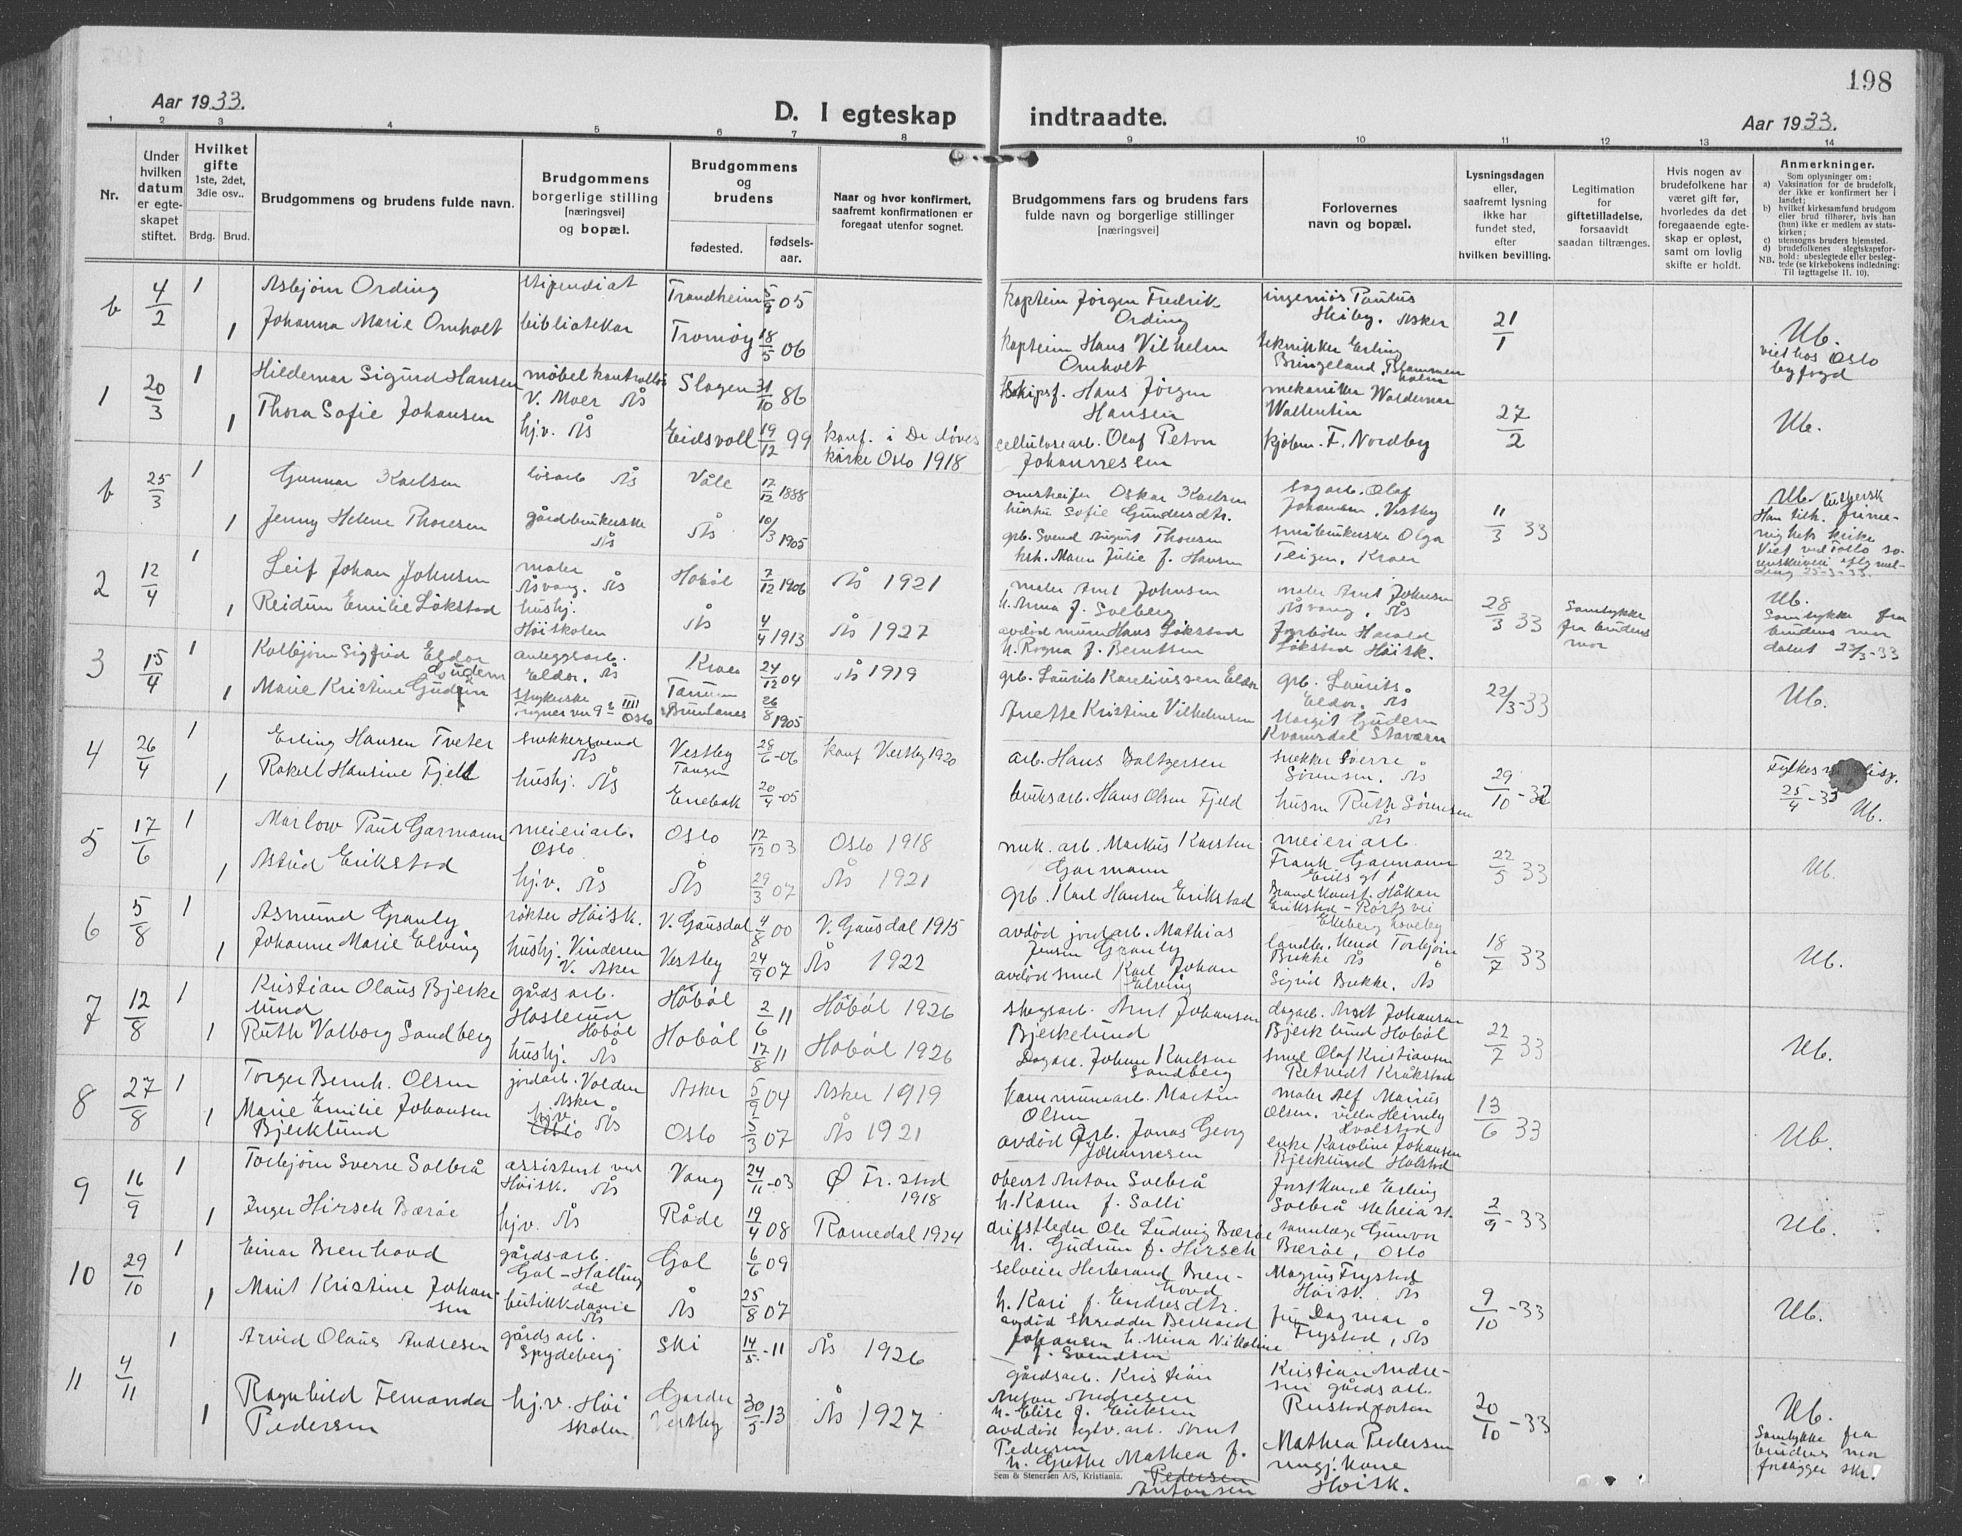 198
Aar 1933.
D. I egteskap indtraadte.
Aar 1933.
1 2 3 4 5 6 7 8 9 10 11 12 13 14
Nr.
Under hvilken datum er egteskapet stiftet.
Hvilket gifte 1ste, 2det, 3die osv..
Brdg. Brud.
Brudgommens og brudens fulde navn.
Brudgommens borgerlige stilling [næringsvei] og bopæl.
Brudgommens og brudens
fødested. fødselsaar.
Naar og hvor konfirmert, saafremt konfirmationen er foregaat utenfor sognet.
Brudgommens fars og brudens fars fulde navn og borgerlige stillinger [næringsvei]
Forlovernes navn og bopæl.
Lysningsdagen eller, saafremt lysning ikke har fundet sted, efter hvilken bevilling.
Legitimation for giftetilladelse, forsaavidt saadan tiltrænges.
Hvis nogen av brudefolkene har været gift før, hvorledes da det foregaaende egteskap er opløst, samt om lovlig skifte er holdt.
Anmerkninger.
Som oplysninger om:
a) Vaksination for de brudefolk, der ikke er konfirmert her i landet;
b) hvilket kirkesamfund brudgom eller brud tilhører, hvis han (hun) ikke er medlem av statskirken;
c) utensogns bruders hjemsted.
d) brudefolkenes slegtskapsforhold: ubeslegtede eller beslegtede (se kirkebokens indledning:
NB. Til iagttagelse II. 10).
b 4/2 1 Asbjørn Ording stipendiat Trondheim 5/9 05 kaptein Jørgen Fredrik Ording ingeniør Paulus Heiby. Asker 21/1 Ub. viet hos Oslo byfogd
1 Johanna Marie Omholt bibliotekar Tromøy 18/5 06 kaptein Hans Vilhelm Omholt tekniker Erling Bringeland,
1 20/3 1 Hildemar Sigurd Hansen møbelkontrollør V. Moer Ås Slagen 31/10 86 skipsf. Hans Jørgen Hansen mekaniker Waldemar Wallentin 27/2 Ub.
1 Thora Sofie Johansen hj.v. Ås Eidsvoll 19/12 99 konf. i De døves kirke Oslo 1918 cellulosearb. Olaf Peton Johannessen kjøbm. F. Nordby
b 25/3 1 Gunnar Karlsen løsarb Ås Våle 17/12 1888 Oskar Karlsen hustru Sofie Gundersdtr. sagarb. Olaf Johansen, Vestby 11/3 33 Ub.
1 Jenny Helene Thoresen gårdbrukerske Ås Ås 10/3 1905 grb. Svend August Thoresen hsh. Maren Julie f. Hansen småbrukerske Olga Teigen, Kroer
2 12/4 1 Leif Johan Johnsen maler Åsvang, Ås Hobøl 7/12 1906 Ås 1921 maler Arnt Johnsen h. Anna f. Solberg maler Arnt Johnsen Åsvang, Ås 28/3 33 Samtykke fra brudens mor Ub. Samtykke fra brudens mor datert 22/3-33
1 Reidun Emilie Løkstad hushj. Høiskolen Ås 4/4 1913 Ås 1927 avdød murer Hans Løkstad h. Ragna f. Berntsen Harald Løkstad Høisk.
3 15/4 1 Kolbjørn Sigfrid Eldor anleggsarb. Eldor, Ås Kroer 24/12 04 Ås 1919 grb. Laurits Kareliussen Eldor grb. Laurits Eldor, Ås 22/3-33 Ub.
1 Marie Kristine Gudem sykerske Oslo Tanum Brunlanes 26/8 1905 Anette Kristine Vilhelmsen Margit Gudem Kvamsdal Stavern
4 26/4 1 Erling Hansen Tveter snekkersvend Ås Vestby 28/6-06 konf Vestby 1920 arb. Hans Baltzersen snekker Sverre Sørensen, Ås 29/10-32 25/4-33 Ub.
1 Rakel Hansine Fjell hushj. Ås Tangen Enebak 20/4-05 bruksarb. Hans Olsen Fjeld husm Ruth Sørensen Ås
5 17/6 1 Marlow Paul Garmann meieriarb. Oslo Oslo 17/12 03 Oslo 1918 mek. arb. Markus Karsten Garmann meieriarb. Frank Garmann 22/5 33 Ub.
1 Astrid Erikstad hj.v. Ås Ås 29/3 07 Ås 1921 grb. Karl Hansen Erikstad Håkan Erikstad
6 5/8 1 Asmund Granly røkter Høisk. V. Gausdal 4/8 00 V. Gausdal 1915 avdød jordarb. Mathias Jensen Granly landbr. kand Torbjørn Brekke Ås 18/7 33 Ub.
1 Johanne Marie Elving hushj. Vinderen V. Aker Vestby 24/9 07 Ås 1922 avdød smed Karl Johan Elving Sigrid Brekke, Ås
7 12/8 1 Kristian Olaus Bjerkelund gårdsarb. Haslerud Hobøl Hobøl 2/6 11 Hobøl 1926 skogsarb. Arnt Johansen Bjerkelund dagarb. Arnt Johansen Bjerkelund Hobøl 22/7 33 Ub.
1 Ruth Valborg Sandberg hushj. Ås Hobøl 17/8 11 Hobøl 1926 Dagarb. Johan Karlsen Sandberg smed Olaf Kristiansen Retvedt Kråkstad
8 27/8 1 Torger Bernh. Olsen jordarb. Volden Asker Asker 5/9 04 Asker 1919 kommunearb. Martin Olsen maler Alf Marius Olsen, villa Heimly Hvalstad 13/6 33 Ub.
1 Marie Emilie Johansen Bjerklund hj.v. Ås Oslo 5/3 07 Ås 1921 avdød grb. Jonas Georg Johannesen enke Karoline Johansen Bjerklund Holstad
9 16/9 1 Torbjørn Sverre Solbrå assistent ved Høisk. Ås Vang 24/11-03 Ø Fr.stad 1918 oberst Anton Solbrå h. Karen f. Solli forstkand Erling Solbrå 2/9-33 Ub.
1 Inger Hirsch Bærøe hj.v. Ås Råde 19/4 08 Romedal 1924 driftsleder Ole Ludvig Bærøe h. Gudrun f. Hirsch Gunvor Bærøe, Oslo
10 29/10 1 Einar Brenhovd gårdsarb. Gol-Hallingdal Gol 6/6 09 selveier Herbrand Brenhovd h. Kari f. Endresdtr. Magnus Frystad Høisk. Ås 9/10-33 Ub.
1 Marit Kristine Johansen butikkdame Ås Ås 25/8 07 avdød skredder Berhard Johansen h. Mina Nikoline f. Svendsen fru Dagmar Frystad, Ås
11 4/11 1 Arvid Olaus Andresen gårdsarb. Spydeberg Ski 14/5-11 Ås 1926 gårdsarb. Kristian Anton Andresen h. Elise f. Eriksen Kristian Andresen gårdsarb. Rustadporten 20/10-33 Ub. Samtykke fra brudens mor foreligger skr.
1 Ragnhild Fernanda Pedersen hj.v. Høiskolen Garder Vestby 30/5-13 Ås 1927 avdød teglv.arb. Arnt Pedersen h. Grethe Mathea f. Pedersen Antonsen Mathea Pedersen rengj.kone Høisk.
Sem & Stenersen A/S, Kristiania.